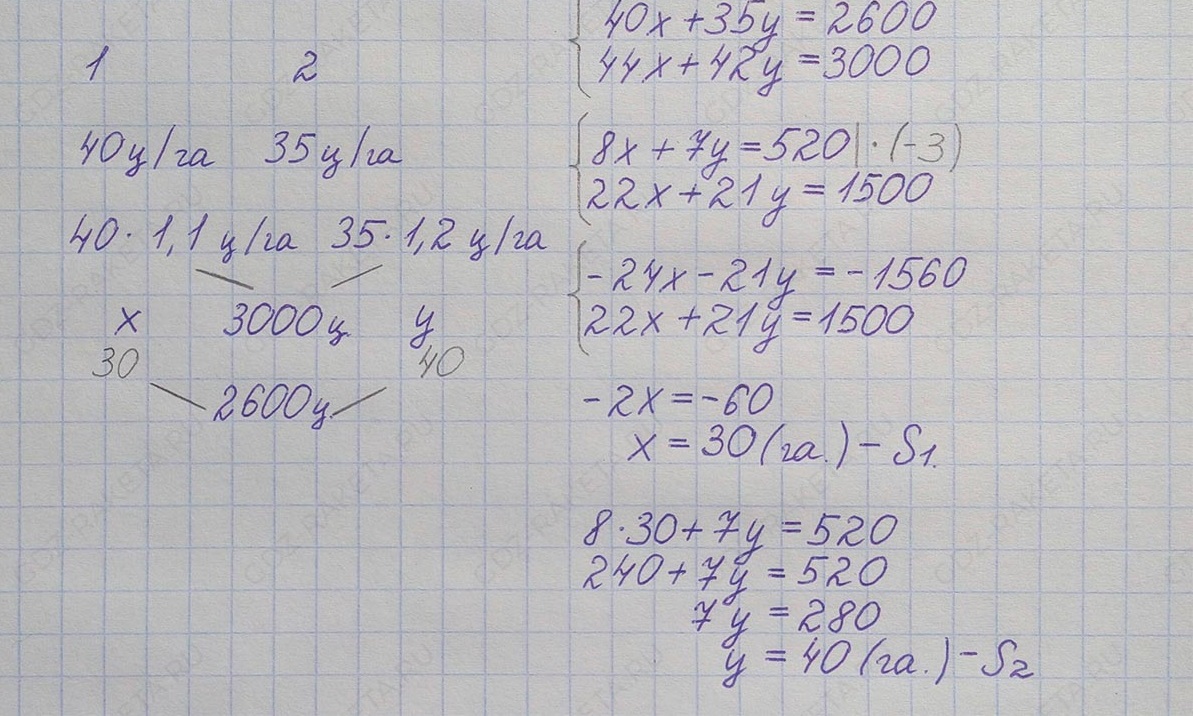 1 2
40ц/га 35ц/га
40·1,1 ц/га 35·1,2 ц/га
x 3000ц y
30 40
2600ц
40x+35y=2600
44x+42y=3000
8x+7y=520|·(-3)
22x+21y=1500
-24x-21y=-1560
22x+21y=1500
-2x=-60
x=30(га.)-S1.
8·30+7y=520
240+7y=520
7y=280
y=40(га.)-S2
GDZ-RAKETA.RU